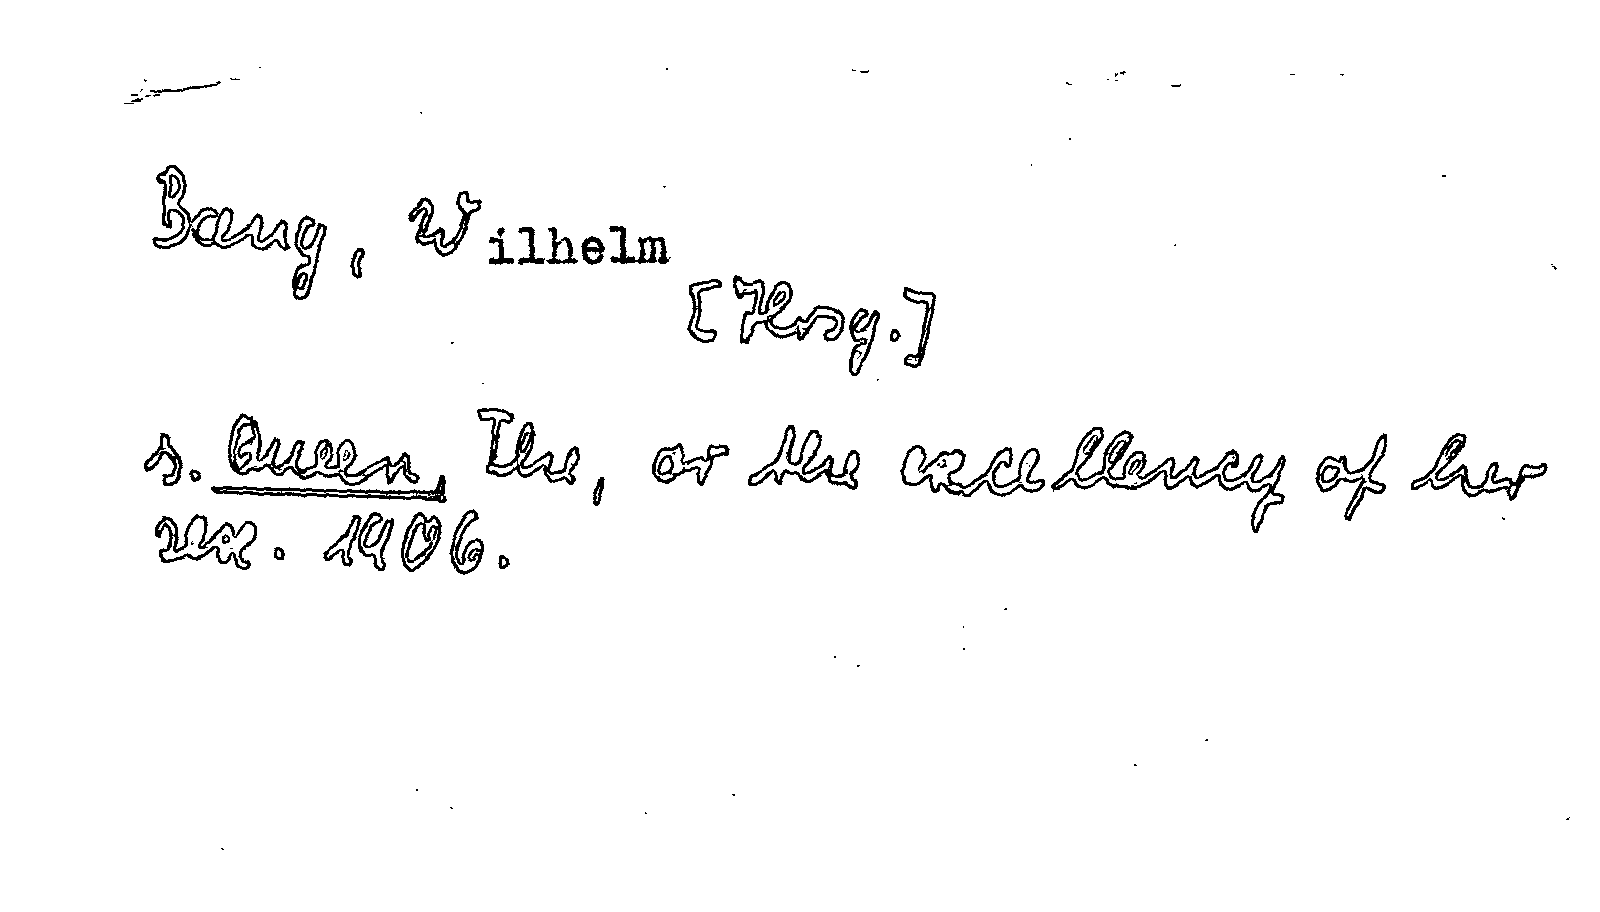 Bang, Wilhelm
[Hrsg.]
s. Queen, The, or the excellency of her
sex. 1906.